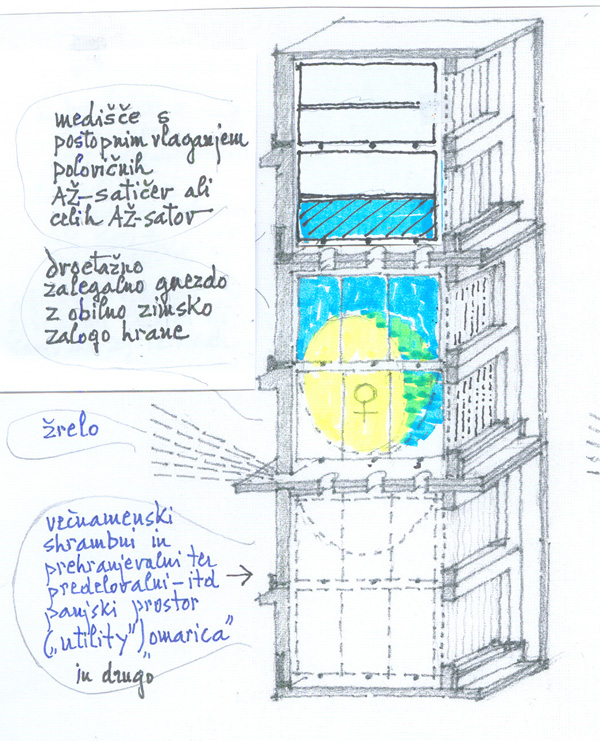 medišče s
postopnim vlaganjem
polovičnih
AŽ-satičev ali
celih AŽ-satov
dvoetažno
zaleganno gnezdo
z obilno zimsko
zalogo hrane
žrelo
večnamenski
shrambni in
prehranjevalni ter
predelovalni-itd
panjski prostor
(„utility") „omarica"
in drugo